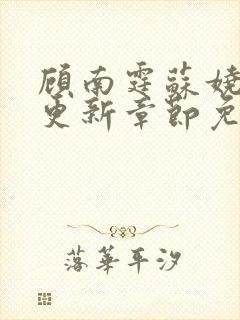 顾南霆苏娆
更新章节免
落华平汐